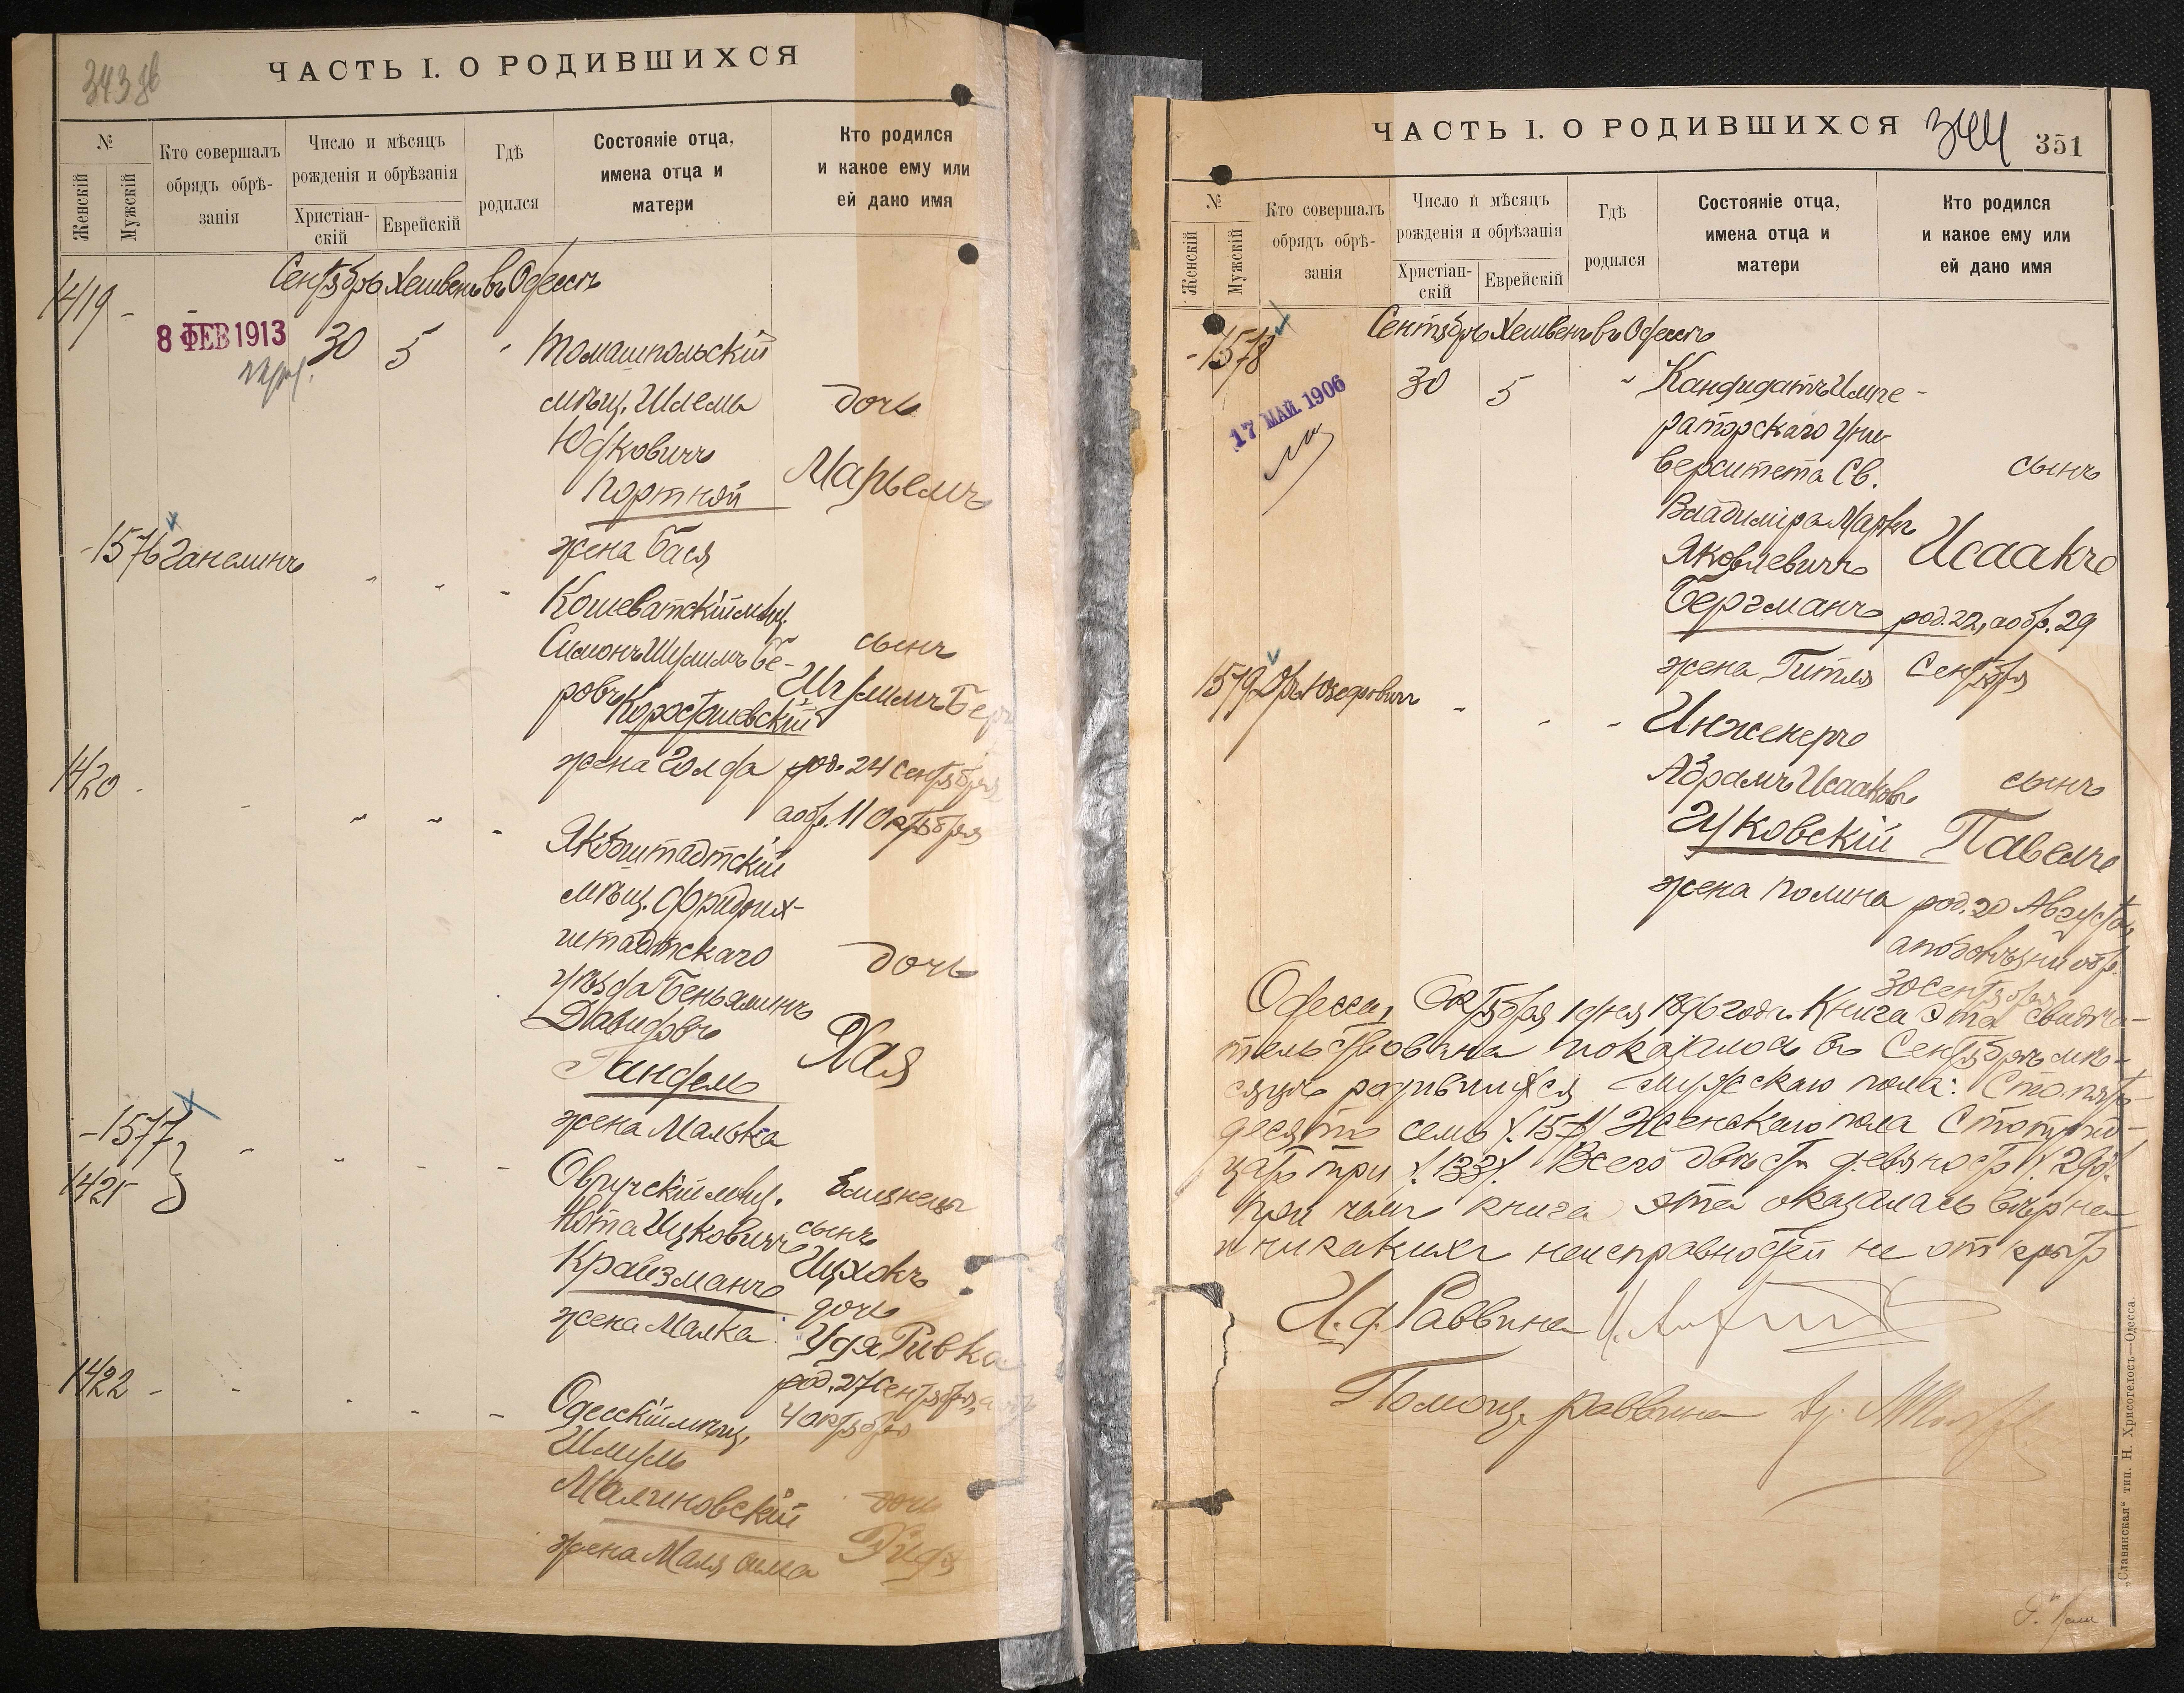 343 об
ЧАСТЬ I. О РОДИВШИХСЯ
№
Женскій
Мужскій
Кто совершалъ
обрядъ обрѣ-
занія
Число и мѣсяцъ
рожденія и обрѣзанія
Христіан-
скій
Еврейскій
Гдѣ
родился
Состояніе отца,
имена отца и
матери
Кто родился
и какое ему или
ей дано имя
Сентябрь Хешвень въ Одессѣ
1419 -
8 ФЕВ 1913
30 5 " Томашпольскій
мѣщ. Шлема дочь
Юдковичъ
Портной Марьемъ
жена Бася
-1576 Ганелинъ " " "
Кошеватскій мѣщ.
Симонъ Шулимъ Бе- сынъ
ровъ Шулимъ Беръ
Коростышевскій
жена Голда род. 24 Сентября
а обр. 11 Октября
1420 - - " " "
Якобштадтскій
мѣщ. Фридрих-
штадтскаго дочь
уѣзда Беньяминъ
Давидовъ Хая
Гандель
жена Малька
-1577
1421 - - - -
Овручскій мѣщ. Близнецы
Нота Ицковичъ сынъ
Крайзманъ Ицхокъ
дочь
жена Малка Удя Ривка
род. 27 Сентября, а обр.
4 октября
1422 - - - - -
Одесскій мѣщ.
Шмуль
Малиновскій дочь
жена Маля Сима
ЧАСТЬ I. О РОДИВШИХСЯ
344
351
№
Женскій
Мужскій
Кто совершалъ
обрядъ обрѣ-
занія
Число и мѣсяцъ
рожденія и обрѣзанія
Христіан-
скій
Еврейскій
Гдѣ
родился
Состояніе отца,
имена отца и
матери
Кто родился
и какое ему или
ей дано имя
Сентябрь Хешвень въ Одессѣ
-1578
17 МАЙ 1906
30 5 " Кандидатъ Импе-
раторскаго Уни-
верситета Св. сынъ
Владиміра Маркъ
Яковлевичъ Исаакъ
Бергманъ род. 22, а обр. 29
жена Гитля Сентября
1579 - - -
Инженеръ
Абрамъ Исааковъ сынъ
Гуковскій Павелъ
жена Полина род. 20 Августа,
а по болѣзни обр.
30 Сентября
Одесса, Октября 1 дня 1896 года. Книга эта свидѣ-
тельствована показалось въ Сентябрѣ мѣ-
сяцѣ родившихся мужскаго пола: Сто пять-
десятъ семь /157/ Женскаго пола Сто трид-
цать три /133/. Всего двѣсти девяносто /290/.
При чемъ книга эта оказалась вѣрна
и никакихъ неисправностей не открыто
И. д. Раввина
Помощ. раввина
„Славянская“ тип. Н. Хрисогелосъ—Одесса.